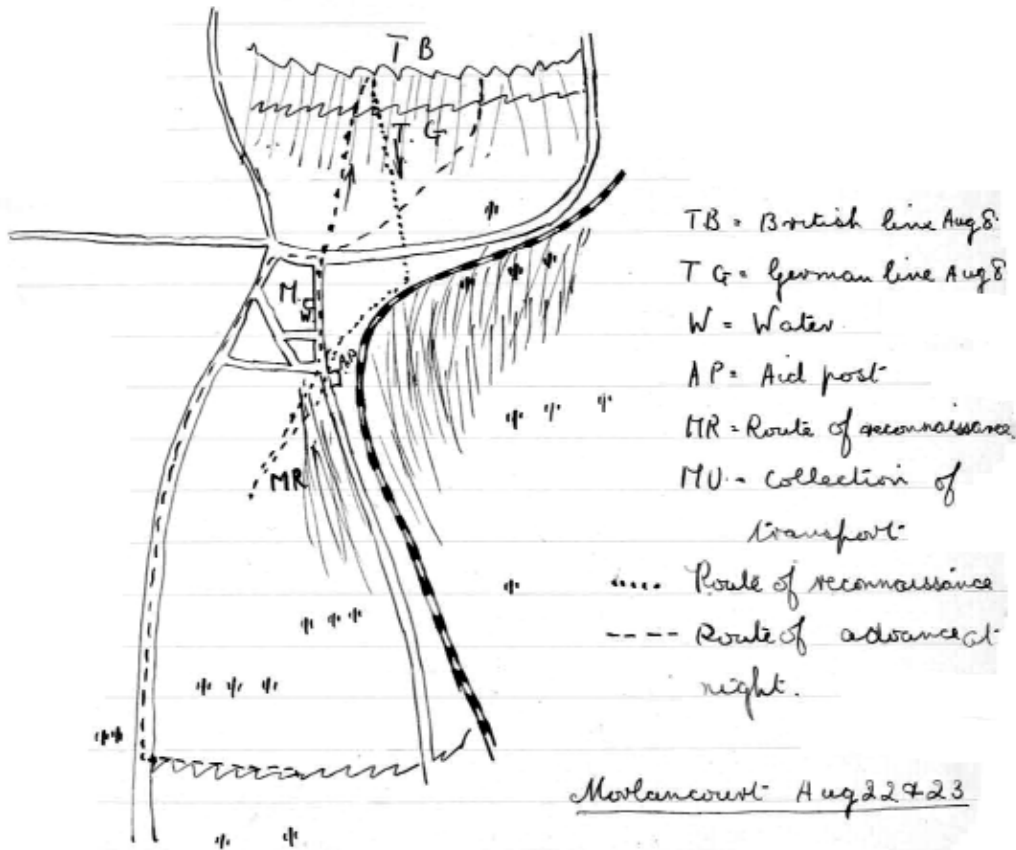 T B
T. G
M.
W.
AP
MR
TB = British line Aug 8
TG = German line Aug 8
W = Water
AP = Aid post
MR = Route of reconnaissance
MU = Collection of
transport
Route of reconnaissance
Route of advance at
night.
Morlancourt Aug 22 & 23